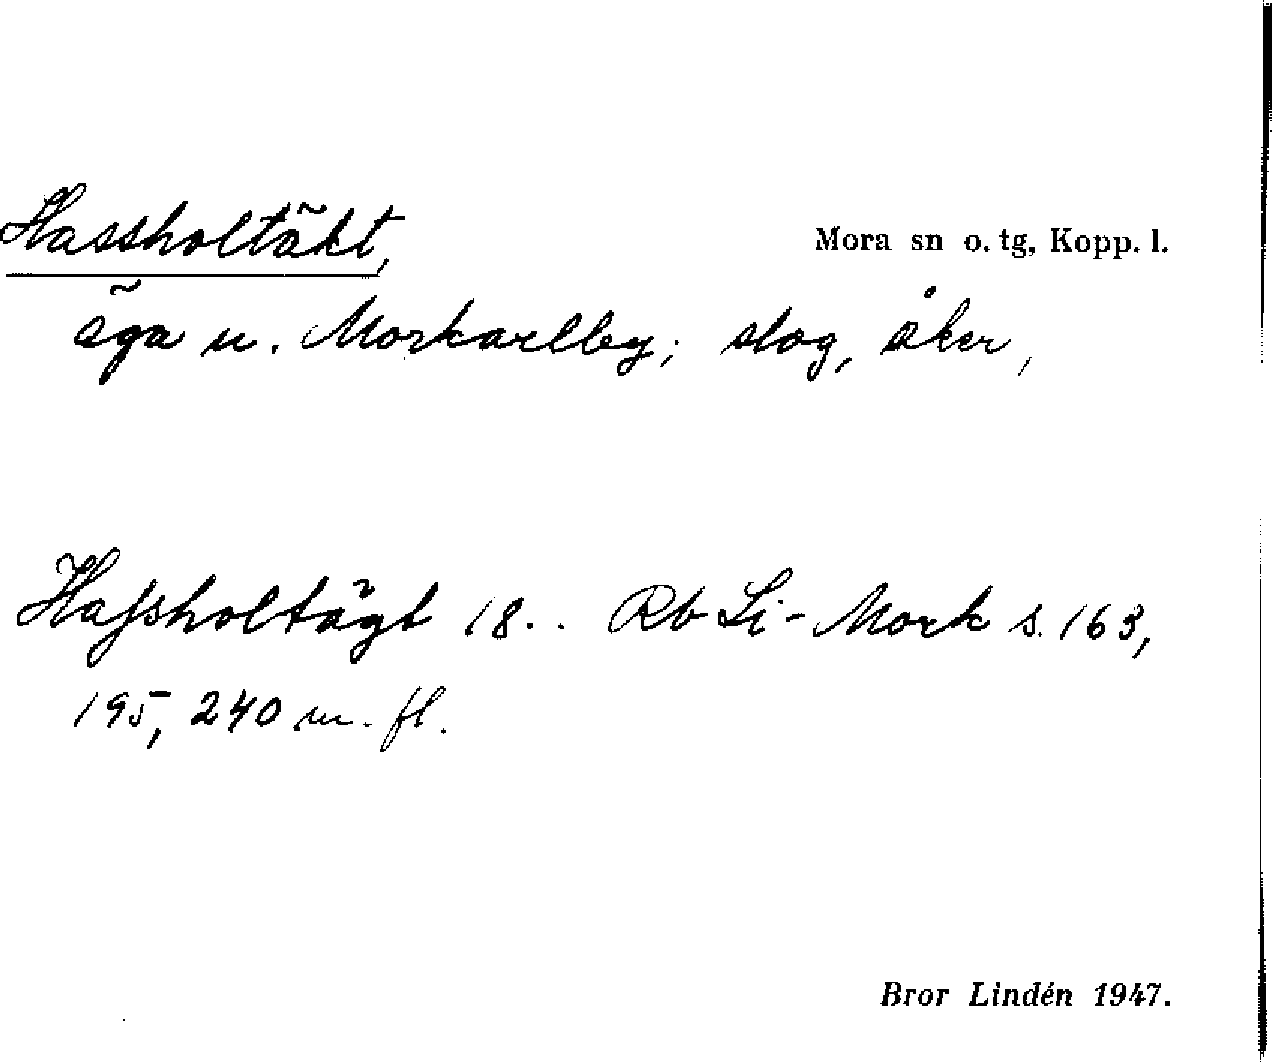 Hassholtäkt, Mora sn o. tg, Kopp. l.
äga u. Morkarlby; slog, åker,
Haſsholtägt 18.. Rb Li-Mork s. 163,
195, 240 m. fl.
Bror Lindén 1947.